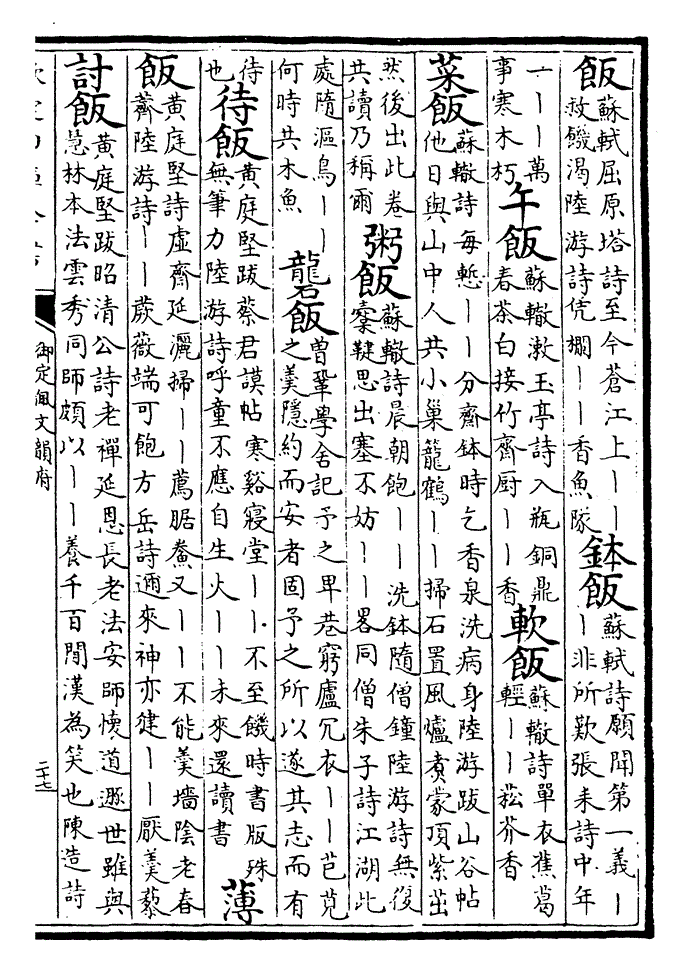 飯
蘇軾屈原塔詩至今蒼江上｜｜
救饑渴陸游詩凭｜｜香魚隊
鉢飯
蘇軾詩願聞第一義｜
｜非所歎張耒詩中年
一｜｜｜萬
事寒木朽
午飯
蘇轍漱玉亭詩入瓶銅鼎
春茶白接竹齋厨｜｜香
軟飯
蘇轍詩單衣蕉葛
輕｜｜菘芥香
菜飯
蘇轍詩每慙｜｜分齋鉢時乞香泉洗病身陸游跋山谷帖
他日與山中人共小巢籠鶴｜｜掃石置風爐煮蒙頂紫茁
然後出此卷
共讀乃稱爾
粥飯
蘇轍詩晨朝飽｜｜洗鉢隨僧鐘陸游詩無復
槖鞬思出塞不妨｜｜畧同僧朱子詩江湖此
處隨漚鳥｜｜
何時共木魚
礱飯
曾鞏學舍記予之卑巷窮廬冗衣｜｜芑莧
之羹隱約而安者固予之所以遂其志而有
待
也
待飯
黃庭堅跋蔡君謨帖寒谿寢堂｜｜不至饑時書版殊
無筆力陸游詩呼童不應自生火｜｜未來還讀書
薄
飯
黃庭堅詩虛齋延灑掃｜｜薦腒鮝又｜｜不能羹墻陰老春
薺陸游詩｜｜蕨薇端可飽方岳詩邇來神亦健｜｜厭羹藜
討飯
黃庭堅跋昭清公詩老禪延恩長老法安師懷道遯世雖與
慧林本法雲秀同師頗以｜｜養千百閒漢為笑也陳造詩
御定佩文韻府
二十七